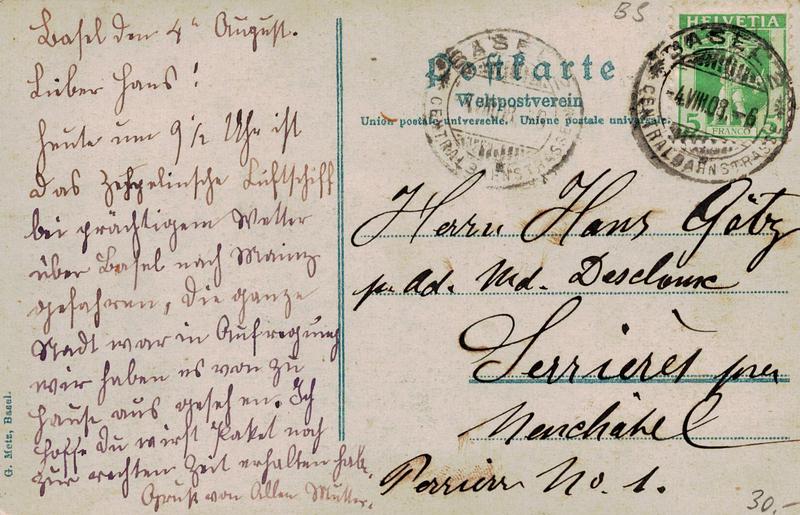 Basel den 4ten August.
Lieber Hans!
Heute um 9 1/2 Uhr ist
das Zeppelinsche Luftschiff
bei prächtigem Wetter
über Basel nach Mainz
gefahren, die ganze
Stadt war in Aufregung
wir haben es von zu
Hause aus gesehen. Ich
hoffe Du wirst Paket noch
zur rechten Zeit erhalten hab.
Gruss von Allen Mutter.
G. Metz, Basel.
BS
Postkarte
Weltpostverein
Union postale universelle. Unione postale universale.
HELVETIA
5
FRANCO
BASEL 2
4.VIII.08. - 6
CENTRALBAHNSTRASSE
BASEL 2
CENTRALBAHNSTRASSE
Herrn Hans Götz
pr Ad. Md. Descloux
Serrières près
Neuchâtel
Perrière No. 1.
30.-